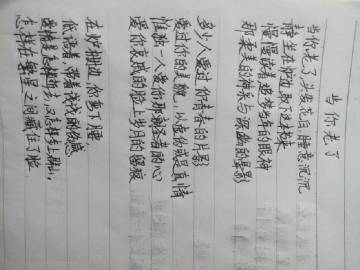 当你老了
当你老了 头发花白 睡意沉沉
倦坐在炉边 取下这本书来
慢慢读着 追梦当年的眼神
那柔美的神采与深幽的晕影
多少人爱过你青春的片影
爱过你的美貌，以虚伪或是真情
惟独一人爱你那朝圣者的心
爱你哀戚的脸上岁月的留痕
在炉栅边，你弯下腰
低语着，带着浅浅的伤感
爱情是怎样逝去，又怎样步上群山，
怎样在繁星之间藏住了脸。